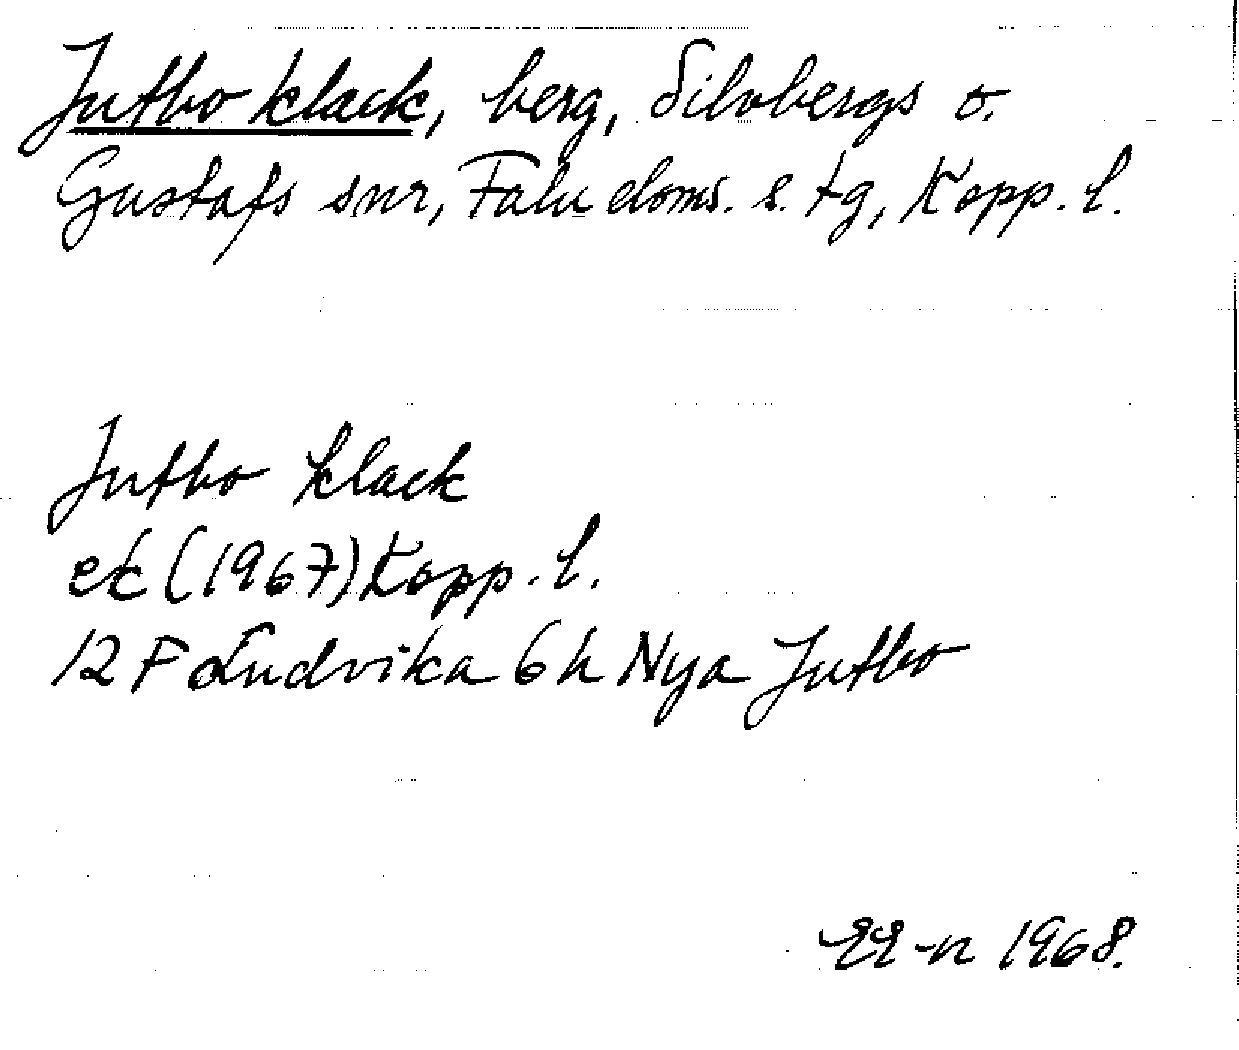 Jutbo klack, berg, Silvbergs o.
Gustafs snr, Falu doms. s. tg, Kopp. l.
Jutbo klack
ek (1967) Kopp. l.
12 F Ludvika 6 h Nya Jutbo
1968.